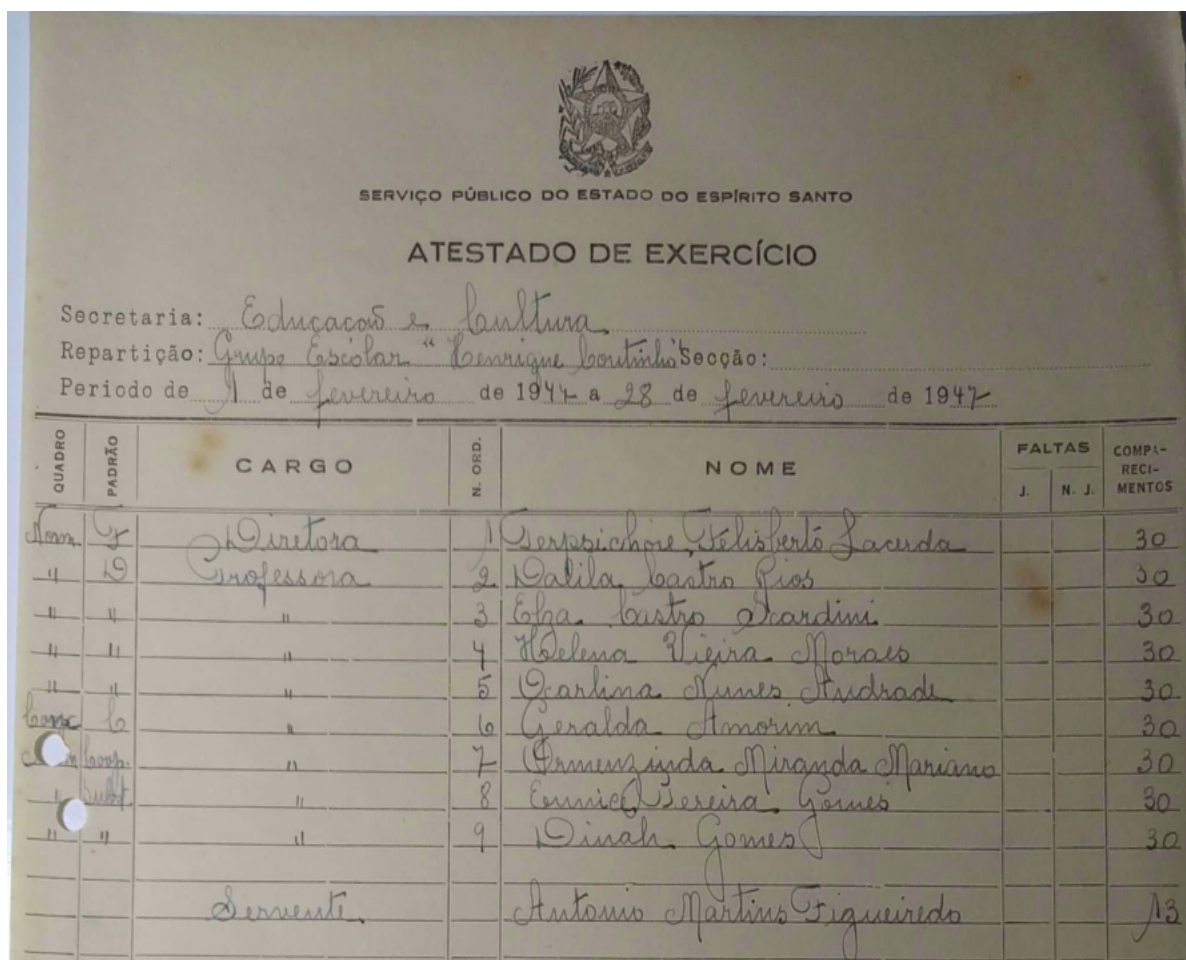 SERVIÇO PÚBLICO DO ESTADO DO ESPÍRITO SANTO
ATESTADO DE EXERCÍCIO
Secretaria: Educação e Cultura
Repartição: Grupo Escolar "Henrique Coutinho" Secção:
Periodo de 1 de fevereiro de 1947 a 28 de fevereiro de 1947
QUADRO PADRÃO CARGO N. ORD. NOME FALTAS J. N. J. COMPARECIMENTOS
Norm. F Diretora 1 Terpsichore Felisberto Lacerda 30
" D Professora 2 Dalila Castro Rios 30
" " " 3 Elza Castro Scardini 30
" " " 4 Helena Vieira Moraes 30
" " " 5 Ocarlina Nunes Andrade 30
C " 6 Geralda Amorim 30
Coop. " 7 Ormenzinda Miranda Mariano 30
" Subt " 8 Eunice Pereira Gomes 30
" " " 9 Dinah Gomes 30
Servente. Antonio Martins Figueiredo 13